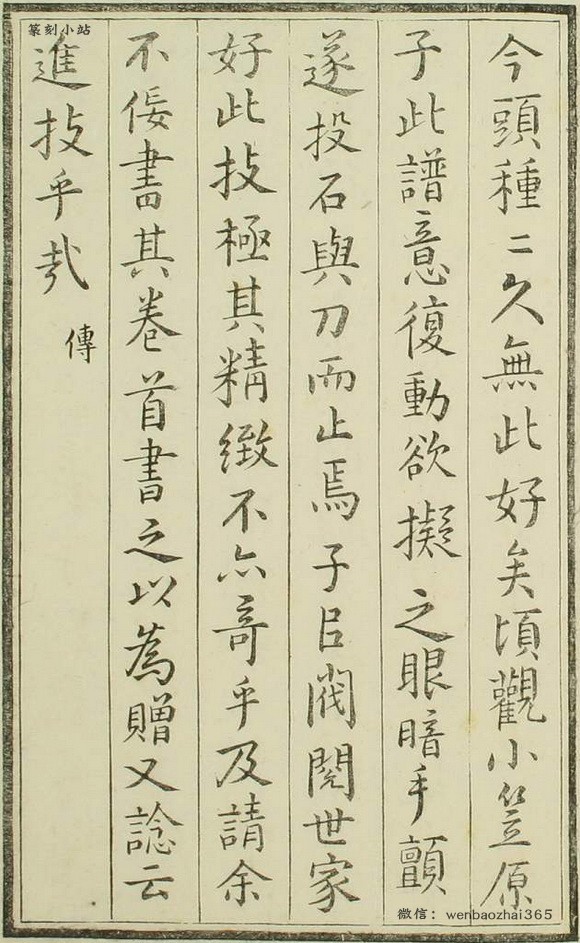 今頭種〻久無此好矣頃觀小笠原
子此譜意復動欲擬之眼暗手顫
遂投石與刀而止焉子㠯閥閱世家
好此技極其精緻不亦奇乎及請余
不佞書其卷首書之以為贈又諗云
進技乎哉 傳
篆刻小站
微信：wenbaozhai365